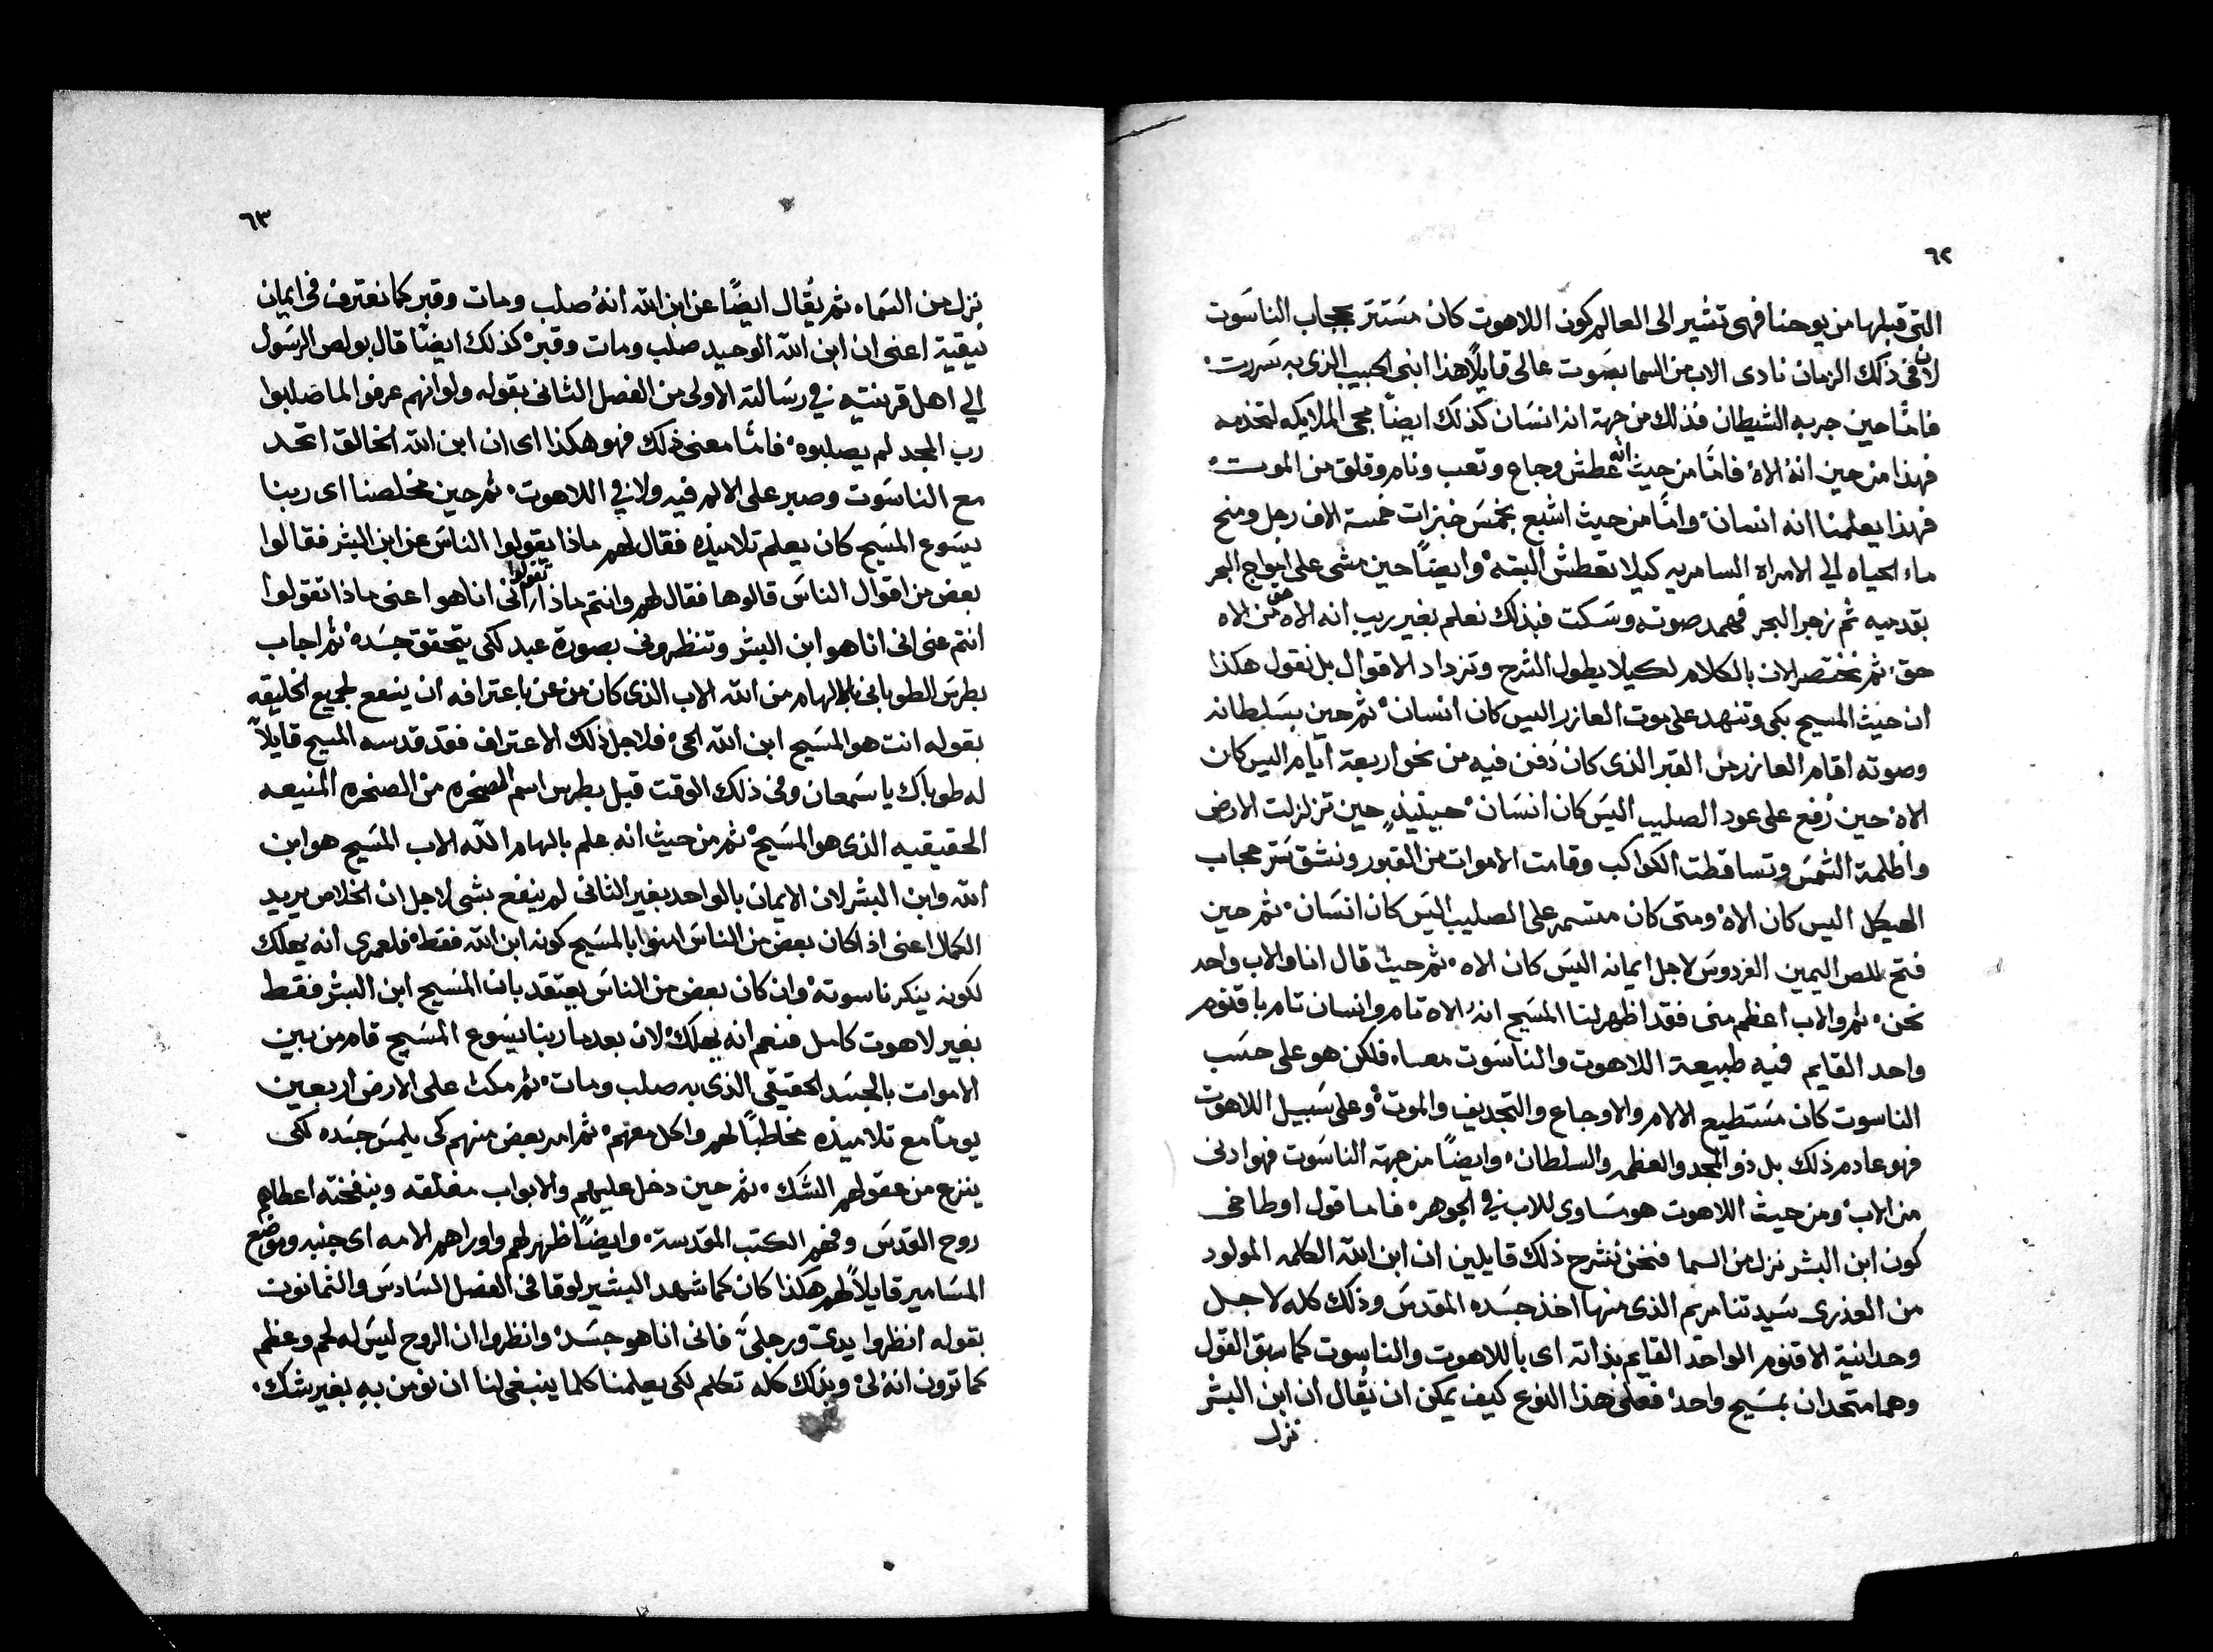 ٦٢
التى قبلها من يوحنا فهى تشير الى العالم كون اللاهوت كان مستتر بحجاب الناسوت
لان فى ذلك الزمان نادى الاب من السما بصوت عالى قايلًا هذا ابنى الحبيب الذى به سررت
فامّا حين جربه الشيطان فذلك من جهة انه انسان كذلك ايضًا مجى الملايكه لتخدمه
فهذا من حين انهُ الاه فامّا من حيث انه عطش وجاع وتعب ونام وقلق من الموت
فهذا يعلمنا انه انسان وامّا من حيث اشبع بخمس خبزات خمسة الاف رجل ومنح
ماء الحياه الي الامراه السامريه كيلا تعطش البته وايضًا حين مشى على امواج البحر
بقدميه ثم زجر البحر فهمد صوته وسكت فبذلك نعلم بغير ريب انه الاه حق من الاه
حق ثم نختصر الان بالكلام لكيلا يطول الشرح وتزداد الاقوال بل نقول هكذا
ان حيث المسيح بكى وتنهد على موت العازر اليس كان انسان ثم حين بسلطانه
وصوته اقام العازر من القبر الذى كان دُفن فيه من نحو اربعة ايام اليس كان
الاه حين رُفع على عود الصليب اليس كان انسان حينيذٍ حين تزلزلت الارض
واظلمة الشمس وتساقطت الكواكب وقامت الاموات من القبور ونشق ستر حجاب
الهيكل اليس كان الاه ومتى كان متسمر على الصليب اليس كان انسان ثم حين
فتح للص اليمين الفردوس لاجل ايمانه اليس كان الاه ثم حيث قال انا والاب واحد
نحن ثم والاب اعظم منى فقد اظهر لنا المسيح انهُ الاه تام وانسان تام باقنوم
واحد القايم فيه طبيعة اللاهوت والناسوت معاء فلكن هو على حسب
الناسوت كان مستطيع الالام والاوجاع والتجديف والموت وعلى سبيل اللاهوت
فهو عادم ذلك بل ذو المجد والعظمه والسلطان وايضًا من جهة الناسوت فهو ادنى
من الاب ومن حيث اللاهوت هو مساوى للاب في الجوهر فاما قول اوطاخى
كون ابن البشر نزل من السما فنحن نشرح ذلك قايلين ان ابن اللّه الكلمه المولود
من العذرى سيدتنا مريم الذى منها اخذ جسده المقدس وذلك كله لاجل
وحدانية الاقنوم الواحد القايم بذاته اى باللاهوت والناسوت كما سبق القول
وهما متحدان بمسيح واحد فعلى هذا النوع كيف يمكن ان يُقال ان ابن البشر
نزل
٦٣
نزل من السماء ثم يُقال ايضًا عن ابن اللّه انهُ صلب ومات وقبر كما نعترف فى ايمان
نيقية اعنى ان ابن اللّه الوحيد صلب ومات وقبر كذلك ايضًا قال بولص الرسول
الي اهل قرنتيه في رسالته الاولى من الفصل الثانى بقوله ولو انهم عرفوا لما صلبوا
رب المجد لم يصلبوه فامّا معنى ذلك فهو هكذا اى ان ابن اللّه الخالق اتحد
مع الناسوت وصبر على الالم فيه ولا في اللاهوت ثم حين مخلصنا اى ربنا
يسوع المسيح كان يعلم تلاميذه فقال لهم ماذا يقولوا الناس عن ابن البشر فقالوا
بعض من اقوال الناس قالوها فقال لهم وانتم ماذا تقولوا انى اناهو اعنى ماذا تقولوا
انتم عنى انى انا هو ابن البشر وتنظرونى بصورة عبد لكى يتحقق جسده ثم اجاب
بطرس الطوبانى بالالهام من اللّه الاب الذى كان مزمن باعترافه ان ينفع لجميع الخليقه
بقوله انت هو المسيح ابن اللّه الحى فلاجل ذلك الاعتراف فقد قدسه المسيح قايلًا
له طوباك يا سمعان وفى ذلك الوقت قبل بطرس اسم الصخره من الصخره المنيعه
الحقيقيه الذى هو المسيح ثم من حيث انه علم بالهام اللّه الاب المسيح هو ابن
اللّه وابن البشر لان الايمان بالواحد بغير الثانى لم ينفع بشى لاجل ان الخلاص يريد
الكمال اعنى اذا كان بعض من الناس امنوا بالمسيح كونه ابن اللّه فقط فلعمرى انه يهلك
لكونه ينكر ناسوته وان كان بعض من الناس يعتقد بان المسيح ابن البشر فقط
بغير لاهوت كامل فنعم انه يهلك لان بعد ما ربنا يسوع المسيح قام من بين
الاموات بالجسد الحقيقى الذى به صلب ومات ثم مكث على الارض اربعين
يومًا مع تلاميذه مخاطبًا لهم واكل معهم ثم امر بعض منهم كى يلمس جسده لكى
ينزع من عقولهم الشك ثم حين دخل عليهم والابواب مغلقه وبنفخته اعطاهم
روح القدس وفهم الكتب المقدسة وايضًا ظهر لهم واوراهم الامه اى جنبه وموضع
المسامير قايلًا لهم هكذا كان كما شهد البشير لوقا فى الفصل السادس والثمانون
بقوله انظروا يدىّ ورجلىّ فانى انا هو جسد وانظروا ان الروح ليس له لحم وعظم
كما ترون انه لى وبذلك كله تكلم لكى يعلمنا كلما ينبغى لنا ان نومن به بغير شك